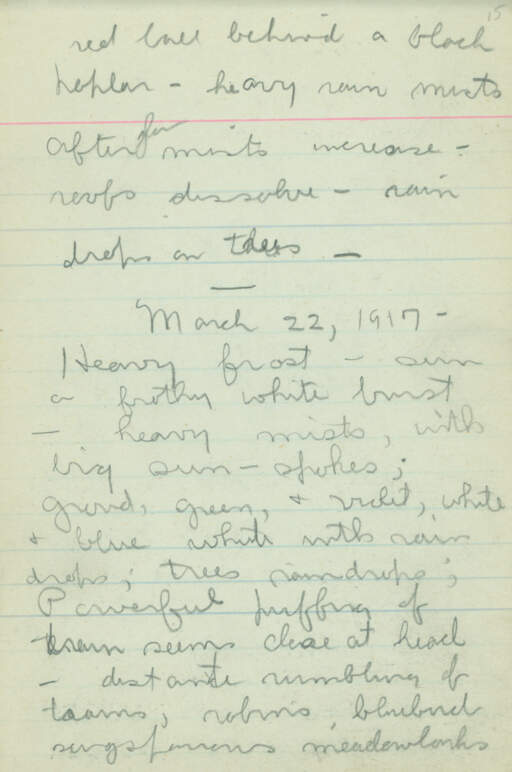 15
red ball behind a black
poplar – heavy rain mists
After mists increase –
roofs dissolve – rain
drops on trees –
March 22, 1917 –
Heavy frost – sun
a frothy white burst
– heavy mists, with
big sun-spokes;
ground, green, + violet, white
+ blue white with rain
drops; trees raindrops;
Powerful puffing of
train seems close at hand
– distant rumbling of
trains; robins, bluebird
songsparrows meadowlarks